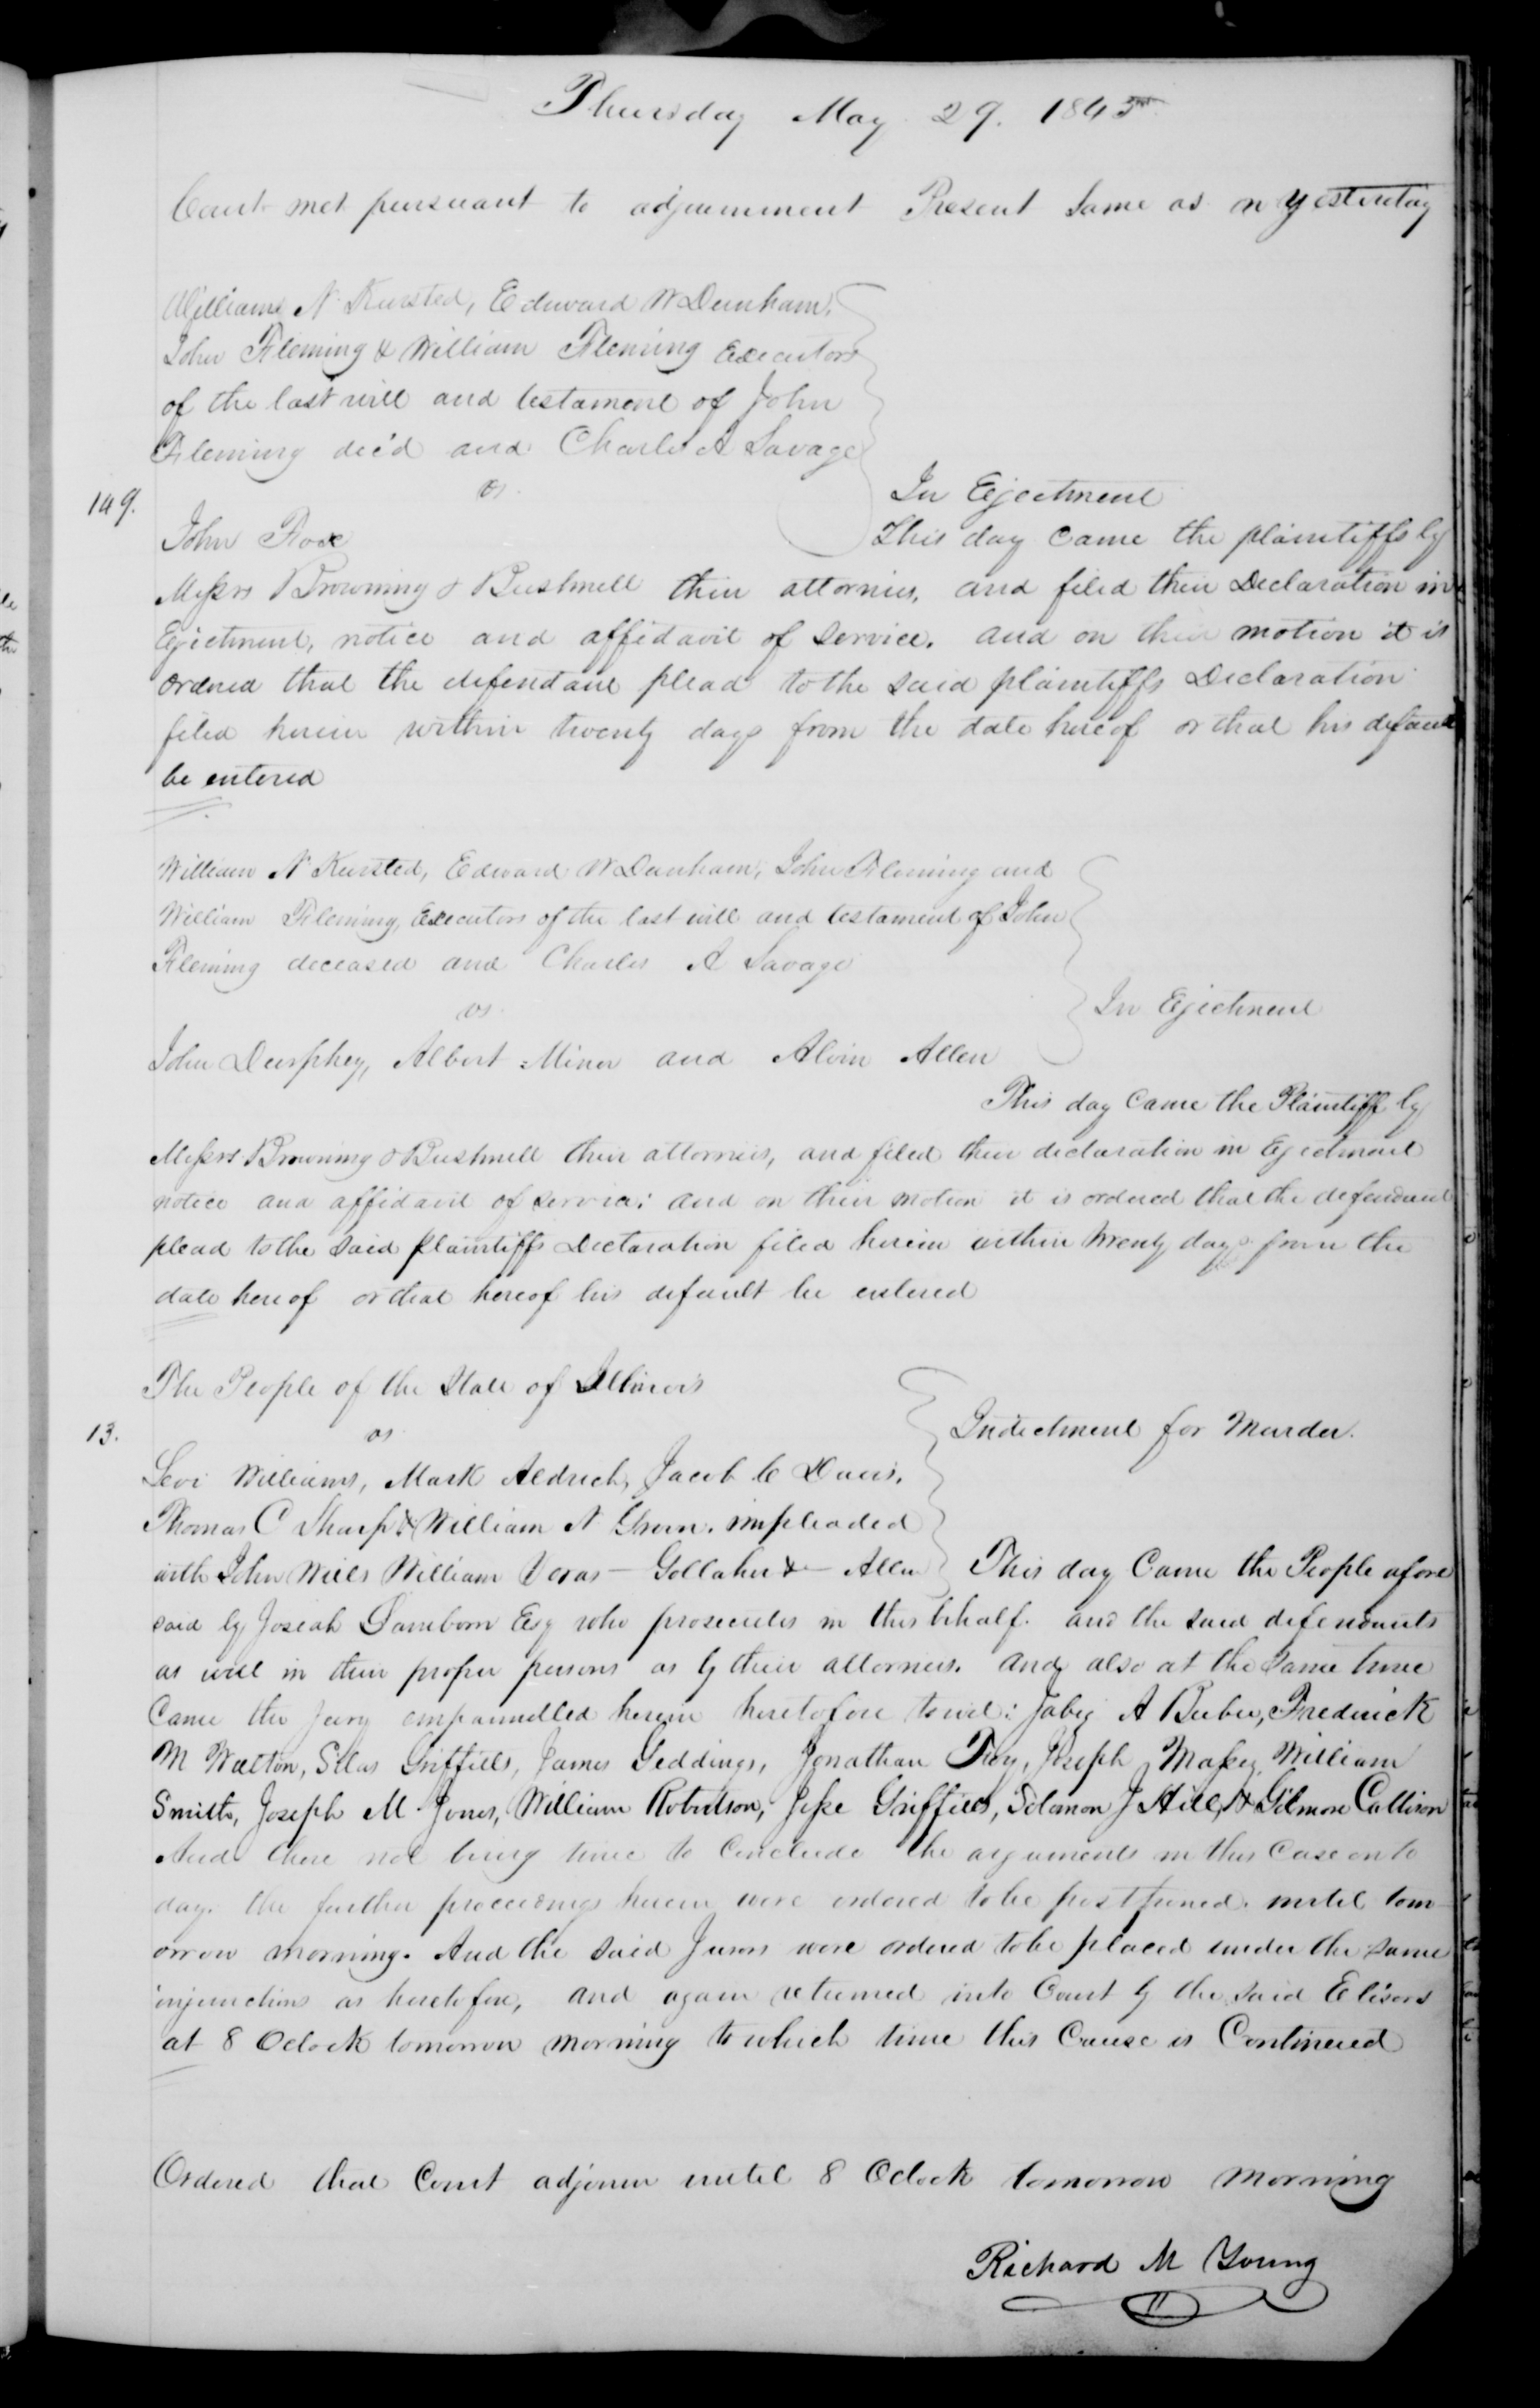 Thursday May 29. 1845
Court met pursuant to adjournment Present Same as on yesterday
Williams N Kiersted, Edward W Dunham,
John Fleming & William Fleming Executors
of the last will and testament of John
Fleming dec'd and Charles A Savage
vs
149.
In Ejectment
John Rose
This day Came the plaintiffs by
Messrs Browning & Bushnell their attornies, and filed their Declaration in
Ejectment, notice and affidavit of service. and on their motion it is
ordered that the defendant plead to the said plaintiffs Declaration
filed herein within twenty days from the date hereof or that his default
be entered
William N Kiersted, Edward W Dunham, John Fleming and
William Fleming, Executors of the last will and testament of John
Fleming deceased and Charles A Savage
vs
In Ejectment
John Durphey, Albert Miner and Alvin Allen
This day Came the Plaintiff by
Messrs Browning & Bushnell their attornies, and filed their declaration in Ejectment
notice and affidavit of service: and on their motion it is ordered that the defendant
plead to the said plaintiffs Declaration filed herein within twenty days from the
date hereof or that hereof his default be entered
The People of the State of Illinois
13.
vs
Indictment for Murder.
Levi Williams, Mark Aldrich, Jacob C Davis,
Thomas C Sharp & William N Grover. impleaded
with John Wills William Voras — Gollaher & — Allen
This day Came the People afore
said by Josiah Lamborn Esq who prosecutes in this behalf. and the said defendants
as well in their proper persons as by their attornies. and also at the same time
Came the Jury empannelled herein heretofore towit: Jabez A Beebe, Frederick
M Walton, Silas Griffitts, James Geddings, Jonathan Foy, Joseph Massey, William
Smith, Joseph M Jones, William Robertson, Jesse Griffitts, Solomon J Hill, & Gilmore Callison
And there not being time to Conclude the arguments in this Case on to
day. the further proceedings herein were ordered to be postponed. until tom
orrow morning. And the said Jurors were ordered to be placed under the same
injunctions as heretofore, and again returned into Court by the said Elisors
at 8 Oclock tomorrow morning to which time this Cause is Continued
Ordered that Court adjourn until 8 Oclock tomorrow morning
Richard M Young